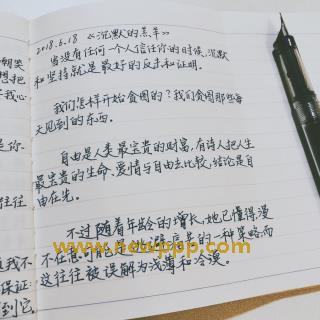 朝笑
想把
我心
是你、
往往
我不
保证:
到它.
2018.6.18 《沉默的羔羊》
当没有任何一个人信任你的时候,沉默
和坚持就是最好的反击和证明。
我们怎样开始贪图的?我们贪图那些每
天见到的东西。
自由是人类最宝贵的财富,有诗人把人生
最宝贵的生命、爱情与自由去比较,结论是自
由在先。
不过随着年龄的增长,她已懂得漫
不在意可能是 的一种策略而
www.newppp.com
这往往被误解为浅薄和冷漠。